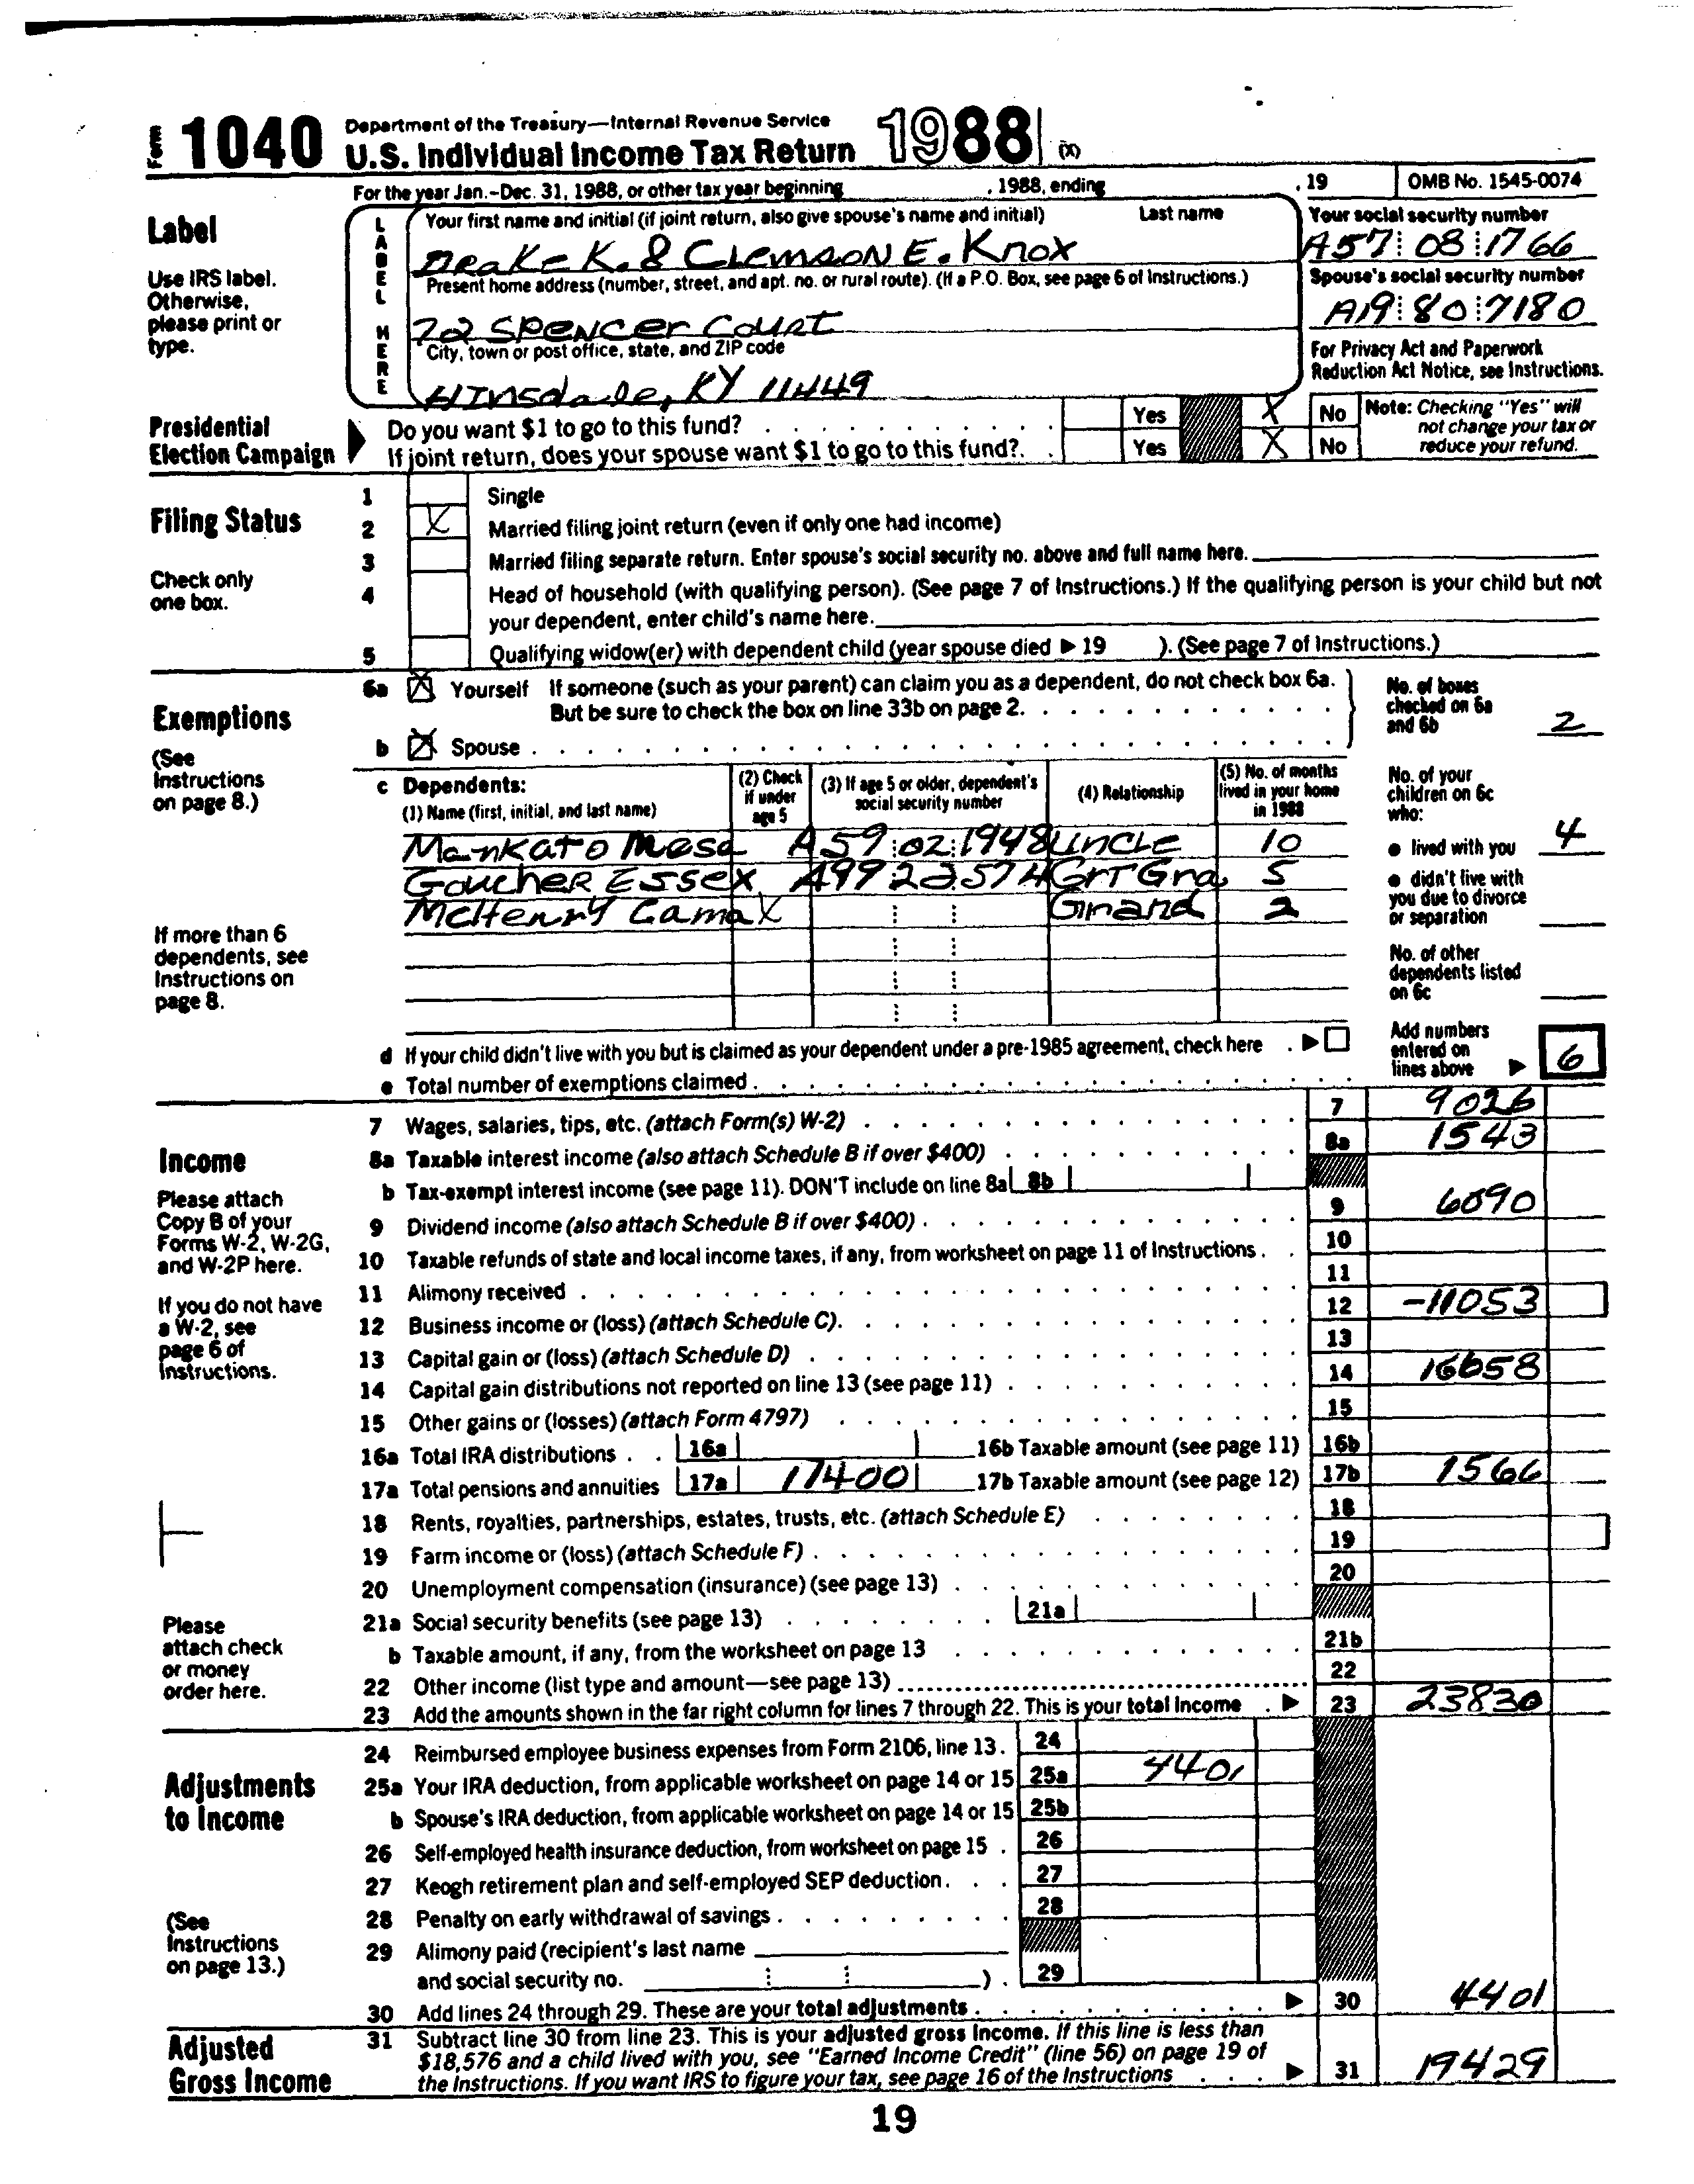 Form 1040 Department of the Treasury—Internal Revenue Service
U.S. Individual Income Tax Return 1988 (X)
For the year Jan.-Dec. 31, 1988, or other tax year beginning , 1988, ending , 19 OMB No. 1545-0074
Label
Use IRS label.
Otherwise,
please print or
type.
LABEL HERE
Your first name and initial (if joint return, also give spouse's name and initial) Last name
Drake K. & Clemson E. Knox
Present home address (number, street, and apt. no. or rural route). (If a P.O. Box, see page 6 of Instructions.)
72 Spencer Court
City, town or post office, state, and ZIP code
Hinsdale, KY 11449
Your social security number
A57 08 1766
Spouse's social security number
A19 80 7180
For Privacy Act and Paperwork
Reduction Act Notice, see Instructions.
Presidential
Election Campaign
Do you want $1 to go to this fund? Yes X No
If joint return, does your spouse want $1 to go to this fund?. Yes X No
Note: Checking "Yes" will
not change your tax or
reduce your refund.
Filing Status
Check only
one box.
1 Single
2 X Married filing joint return (even if only one had income)
3 Married filing separate return. Enter spouse's social security no. above and full name here.
4 Head of household (with qualifying person). (See page 7 of Instructions.) If the qualifying person is your child but not
your dependent, enter child's name here.
5 Qualifying widow(er) with dependent child (year spouse died ▶ 19 ). (See page 7 of Instructions.)
Exemptions
(See
Instructions
on page 8.)
If more than 6
dependents, see
Instructions on
page 8.
6a X Yourself If someone (such as your parent) can claim you as a dependent, do not check box 6a.
But be sure to check the box on line 33b on page 2.
b X Spouse
No. of boxes
checked on 6a
and 6b 2
c Dependents:
(1) Name (first, initial, and last name)
(2) Check
if under
age 5
(3) If age 5 or older, dependent's
social security number
(4) Relationship
(5) No. of months
lived in your home
in 1988
Mankato Mesa A59 02 1948 Uncle 10
Goucher Essex A99 22 574 GrtGra 5
McHenry Cama X Grand 2
No. of your
children on 6c
who:
● lived with you 4
● didn't live with
you due to divorce
or separation
No. of other
dependents listed
on 6c
d If your child didn't live with you but is claimed as your dependent under a pre-1985 agreement, check here ▶
e Total number of exemptions claimed
Add numbers
entered on
lines above ▶ 6
Income
Please attach
Copy B of your
Forms W-2, W-2G,
and W-2P here.
If you do not have
a W-2, see
page 6 of
Instructions.
Please
attach check
or money
order here.
7 Wages, salaries, tips, etc. (attach Form(s) W-2) 7 9026
8a Taxable interest income (also attach Schedule B if over $400) 8a 1543
b Tax-exempt interest income (see page 11). DON'T include on line 8a 8b
9 Dividend income (also attach Schedule B if over $400) 9 6090
10 Taxable refunds of state and local income taxes, if any, from worksheet on page 11 of Instructions 10
11 Alimony received 11
12 Business income or (loss) (attach Schedule C). 12 -11053
13 Capital gain or (loss) (attach Schedule D) 13
14 Capital gain distributions not reported on line 13 (see page 11) 14 16658
15 Other gains or (losses) (attach Form 4797) 15
16a Total IRA distributions 16a 16b Taxable amount (see page 11) 16b
17a Total pensions and annuities 17a 17400 17b Taxable amount (see page 12) 17b 1566
18 Rents, royalties, partnerships, estates, trusts, etc. (attach Schedule E) 18
19 Farm income or (loss) (attach Schedule F) 19
20 Unemployment compensation (insurance) (see page 13) 20
21a Social security benefits (see page 13) 21a
b Taxable amount, if any, from the worksheet on page 13 21b
22 Other income (list type and amount—see page 13) 22
23 Add the amounts shown in the far right column for lines 7 through 22. This is your total income ▶ 23 23830
Adjustments
to Income
(See
Instructions
on page 13.)
24 Reimbursed employee business expenses from Form 2106, line 13. 24
25a Your IRA deduction, from applicable worksheet on page 14 or 15 25a 4401
b Spouse's IRA deduction, from applicable worksheet on page 14 or 15 25b
26 Self-employed health insurance deduction, from worksheet on page 15 26
27 Keogh retirement plan and self-employed SEP deduction 27
28 Penalty on early withdrawal of savings 28
29 Alimony paid (recipient's last name
and social security no. ) 29
30 Add lines 24 through 29. These are your total adjustments ▶ 30 4401
Adjusted
Gross Income
31 Subtract line 30 from line 23. This is your adjusted gross income. If this line is less than
$18,576 and a child lived with you, see "Earned Income Credit" (line 56) on page 19 of
the Instructions. If you want IRS to figure your tax, see page 16 of the Instructions ▶ 31 19429
19